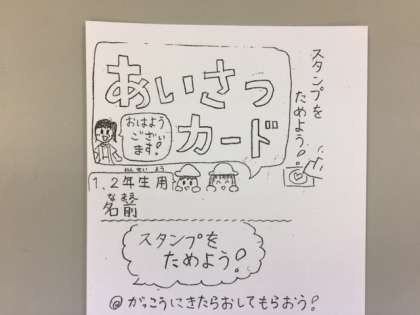 あいさつ
カード
おはよう
ござい
ます!
スタンプを
ためよう!
1.2年生用
ねんせいよう
なまえ
名前
スタンプを
ためよう!
@がっこうにきたらおしてもらおう!